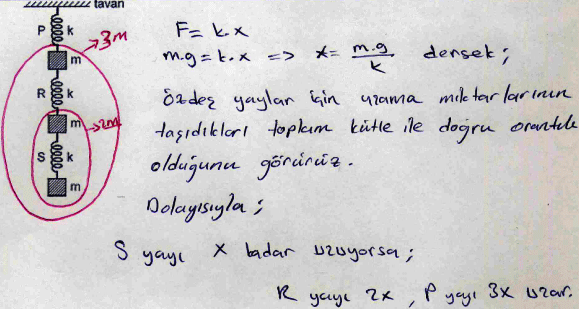 tavan
P k
3m
m
R k
m
2m
S k
m
F = k.x
m.g = k.x => x = m.g/k dersek;
özdeş yaylar için uzama miktarlarının
taşıdıkları toplam kütle ile doğru orantılı
olduğunu görürüz.
Dolayısıyla;
S yayı x kadar uzuyorsa;
R yayı 2x, P yayı 3x uzar.